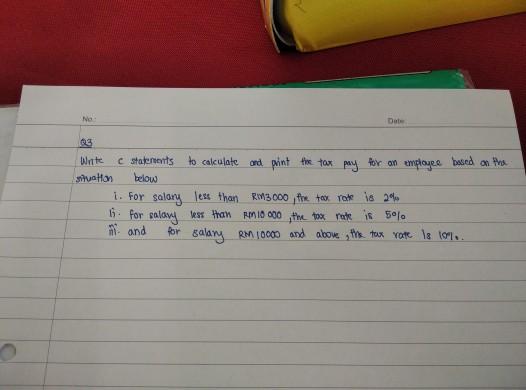 No.: Date:
Q3
Write c statements to calculate and print the tax pay for an employee based on the
situation below
i. For salary less than RM3000, the tax rate is 2%
ii. For salary less than RM10 000, the tax rate is 5%
iii. and for salary RM 10000 and above, the tax rate is 10%.